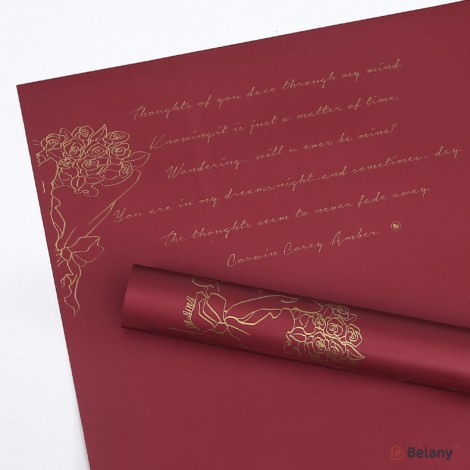 Thoughts of you daze through my mind
Knowingit is just a matter of time.
Wondering... will u ever be mine?
You are in my dreams,night...and sometimes... day.
The thoughts seem to never fade away.
Corwin Corey Amber
Belany